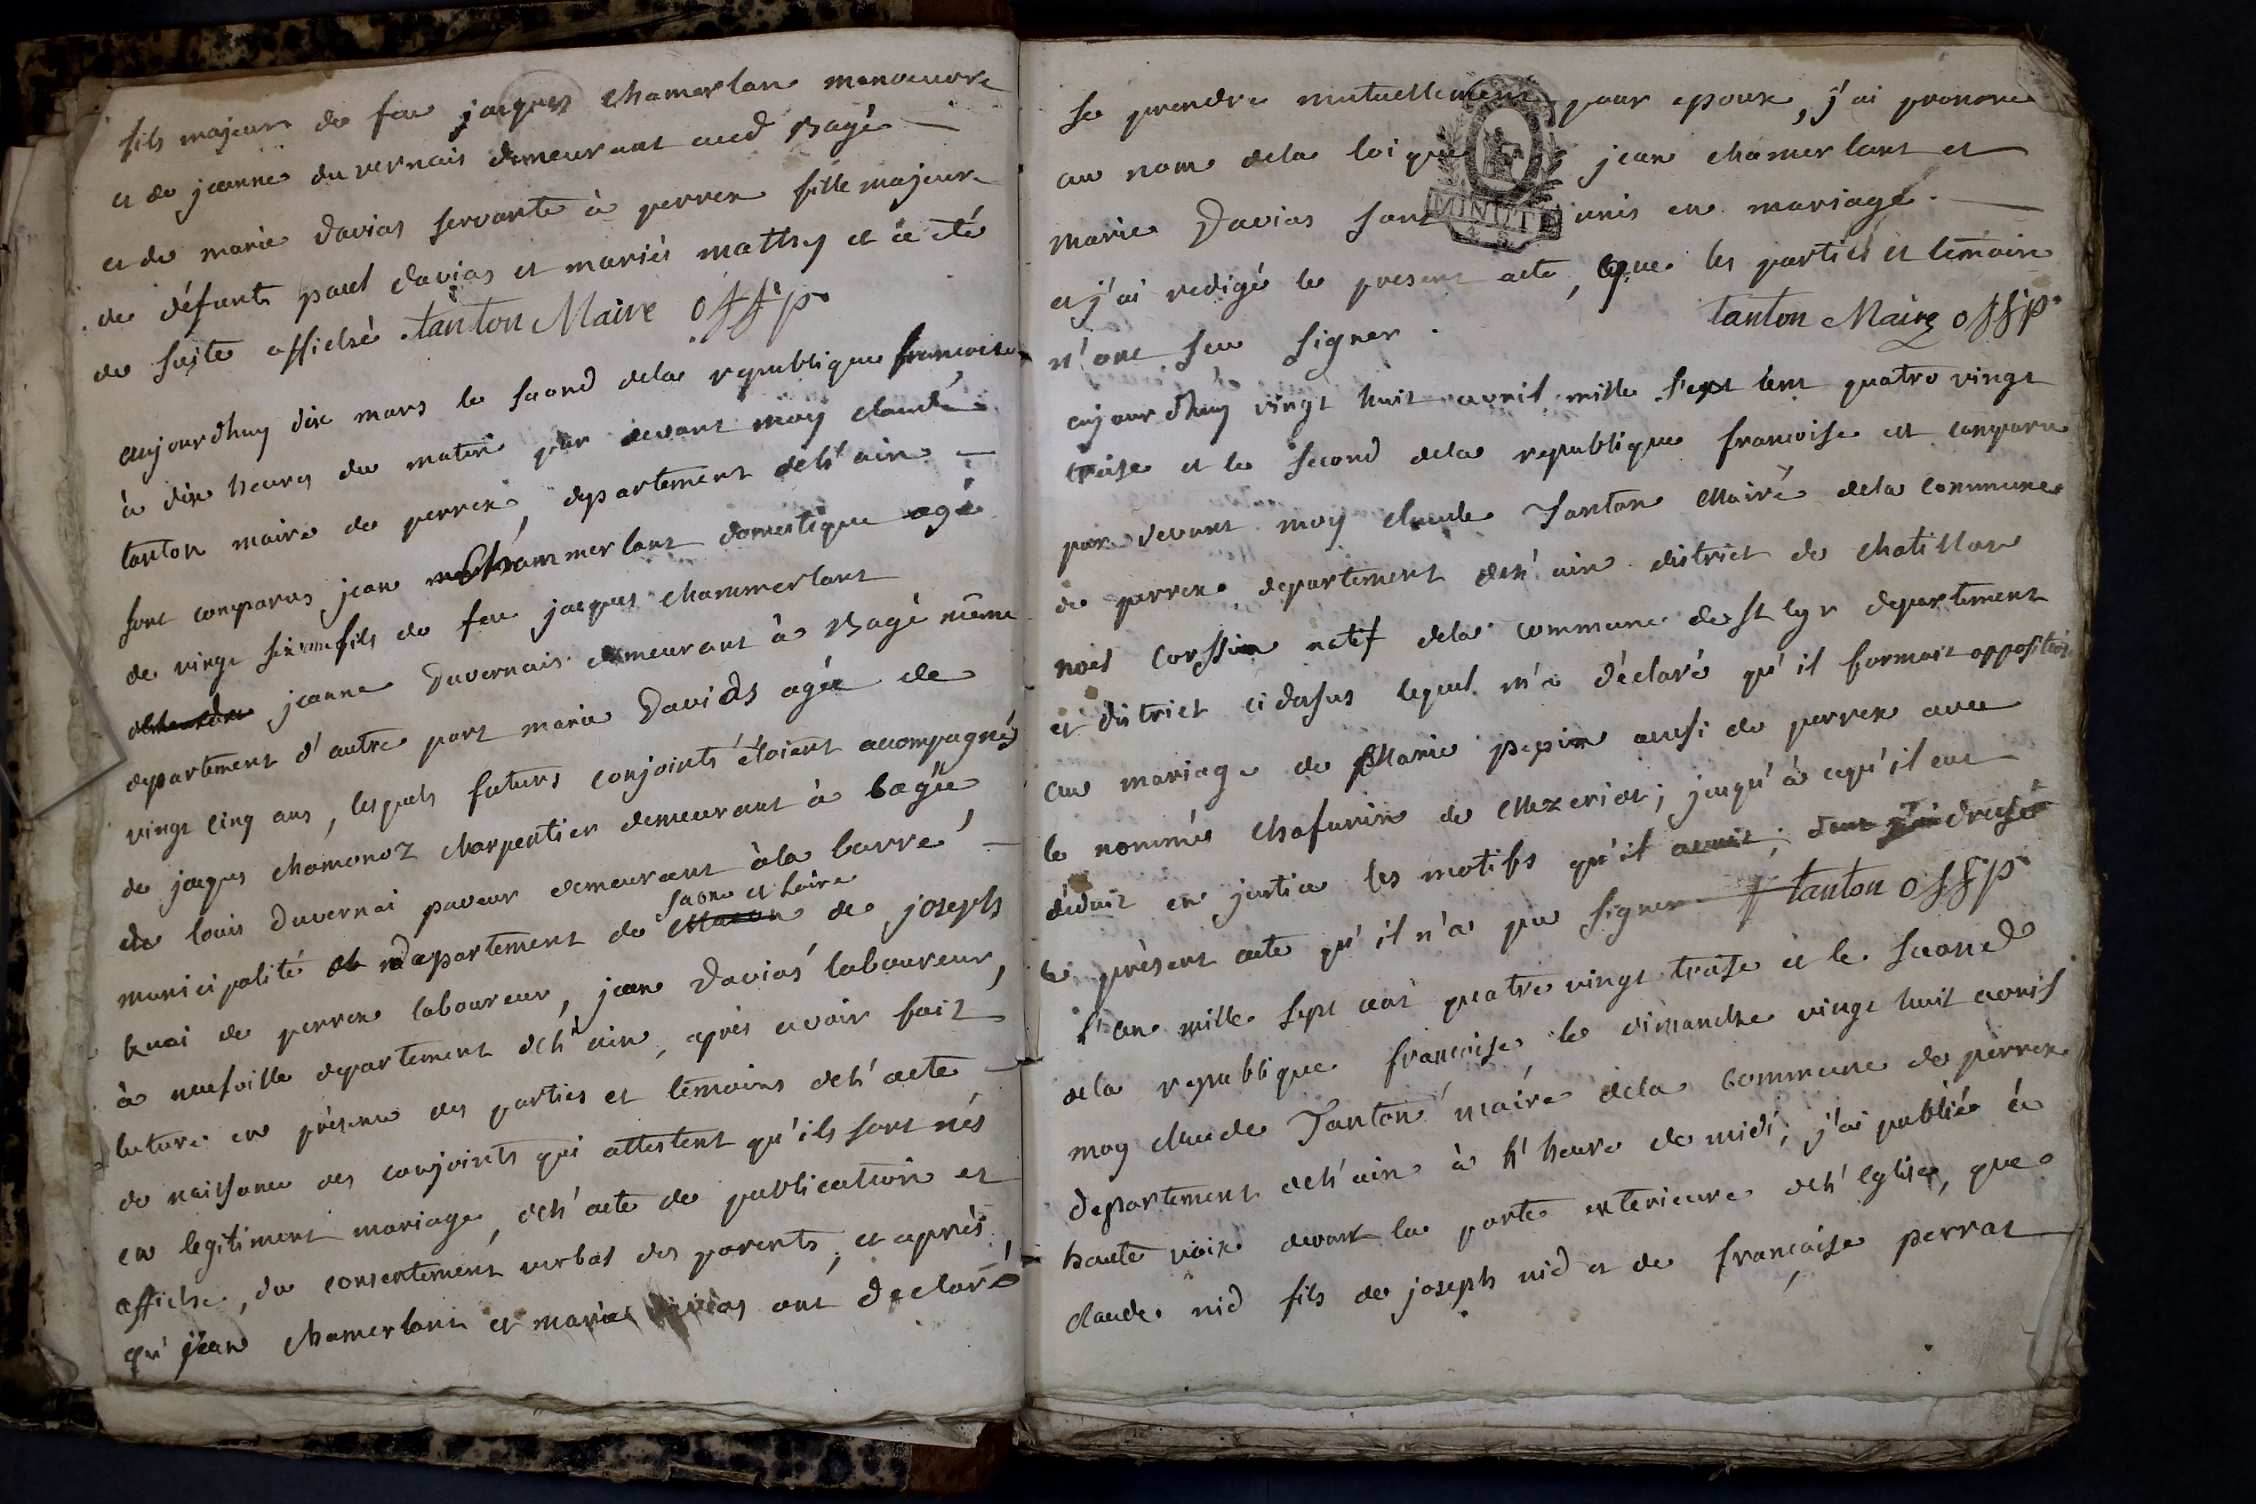 fils majeur de feu jacques chamerlan manoeuvre
et de jeanne duvernais demeurant aud Bagé
et de marie davias servante à perrex fille majeure
de défunts paul davias et mariés mathy et a été
de suite affiché. tanton Maire off.p.
aujourdhuy dix mars le second dela republique francoise
à dix heures du matin par devant moy claude
tanton maire de perrex, departement deh' ain
sont comparus jean Chammerlant domestique agé
de vingt six ans fils de feu jacques chammerlant
jeanne Duvernais demeurant à Bagé même
departement d'autre part marie Davids agée de
vingt cinq ans, lesquels futurs conjoints étoient accompagnés
de jacques chamonoz charpentier demeurant à bagée
de louis duvernai paveur demeurant àla barré
saone et loire
municipalité departement de de joseph
de perrex laboureur, jean davias laboureur,
à neufville departement deh' ain, après avoir fait
lecture en présence des parties et temoins deh' acte
de naissance des conjoints qui attestent qu'ils sont nés
en legitiment mariage, deh' acte de publication et
affiche, du consentement verbal des parents, et après
qu' jean chamerlant et marie davias ont declaré
se prendre mutuellement pour epoux, j'ai prononcé
au nom dela loi que jean chamerlant et
marie Davias sont unis en mariage.
MINUTE
et j'ai redigé le present acte, que les parties et temoins
n'ont seu signer. tanton Maire off.p.
aujourdhuy vingt huit avril mille sept cent quatre vingt
treise et le second dela republique francoise est comparu
par devant moy claude Tanton Maire dela commune
de perrex departement deh' ain district de chatillon
noel Corssin natif dela commune de st cyr departement
et district ci dessus lequel m'a déclaré qu'il formoit opposition
au mariage de Marie pepin aussi de perrex avec
le nommé Chafurin de Mezeriat; jusqu'à ce qu'il eut
déduit en justice les motifs qu'il avait, dont j'ai dressé
le présent acte qu'il n'a pu signer tanton off.p.
l'an mille sept cent quatre vingt treise et le second
dela republique francoise, le dimanche vingt huit avril
moy claude Tanton maire dela commune de perrex
departement deh' ain à h' heure de midi, j'ai publié à
haute voix devant la porte exterieure deh' eglise, que
claude nid fils de joseph nid et de françoise perrat